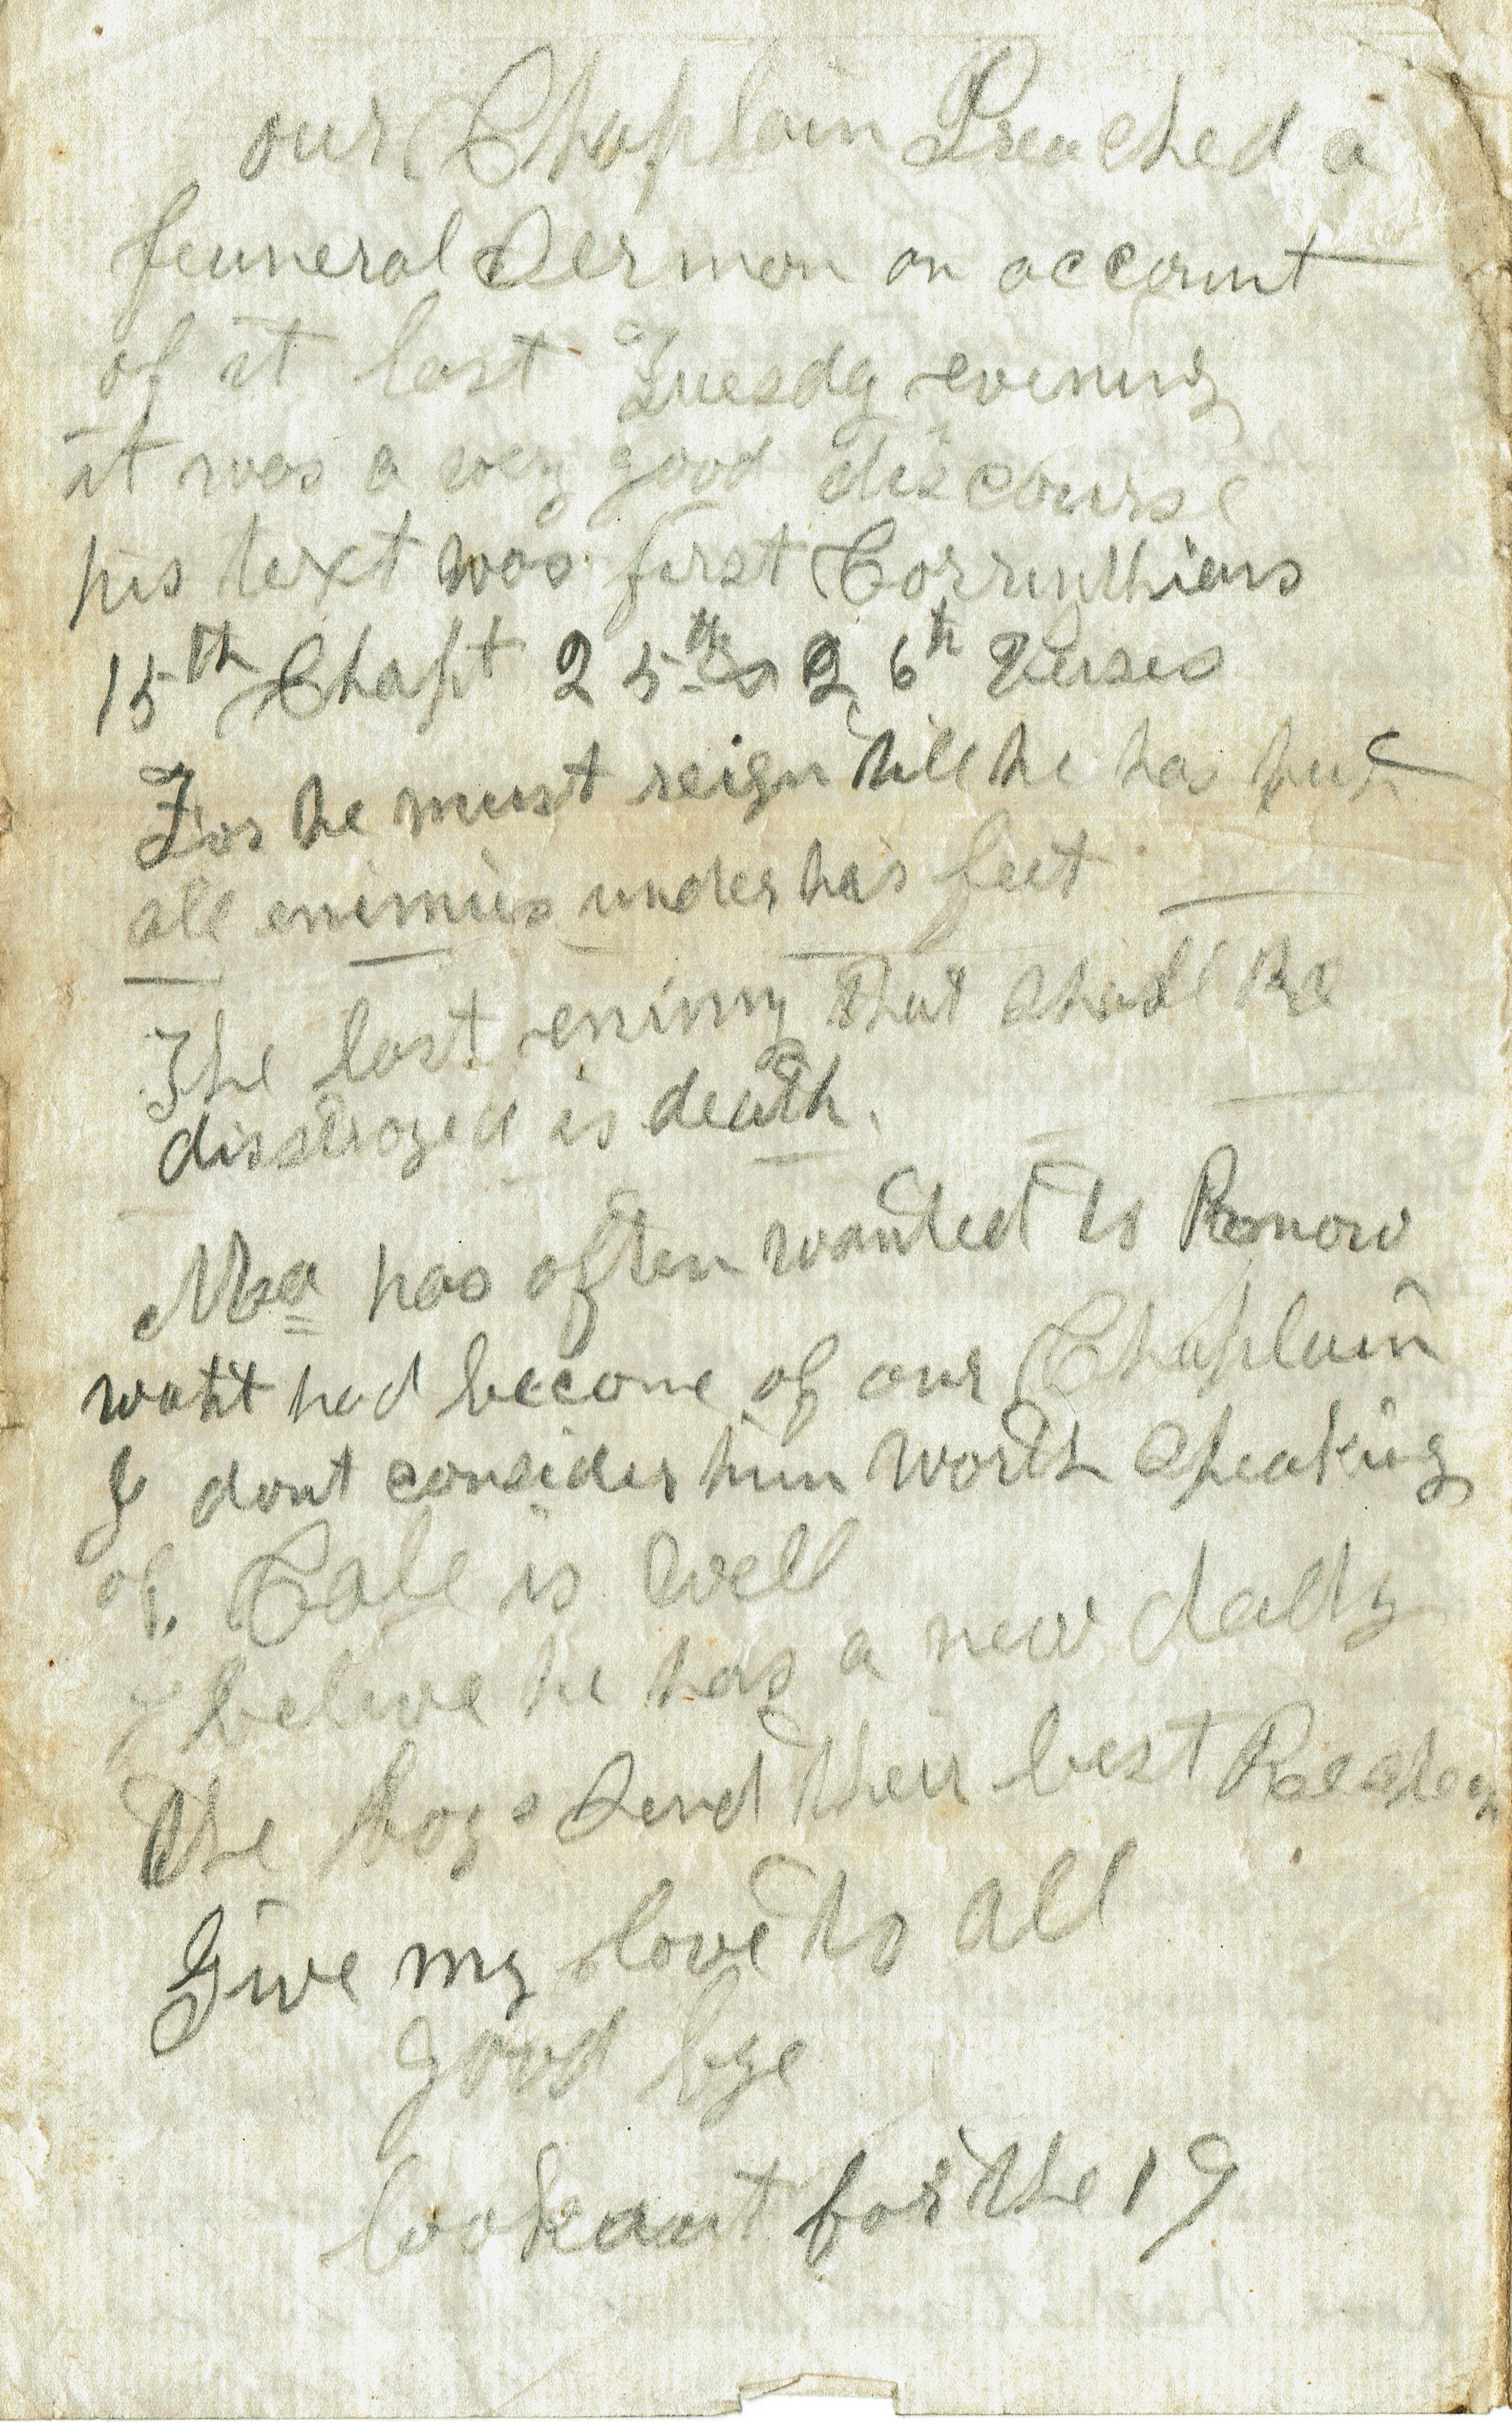 our Chaplain Preached a
feuneral Sermon on account
of it last Tuesda evening
it was a very good discourse
his text was first Corrinthians
15th Chapt 25th & 26th Verses
For he must reign till he has put
all enimies under his feet
The last enimy that shall Be
disstroyed is death.
Ma has often wanted to Know
waht had become of our Chaplain
I dont consider him worth Speaking
of. Cale is well
I beleive he has a new
The boys Send their best
Give my love to all
good bye
look out for the 19